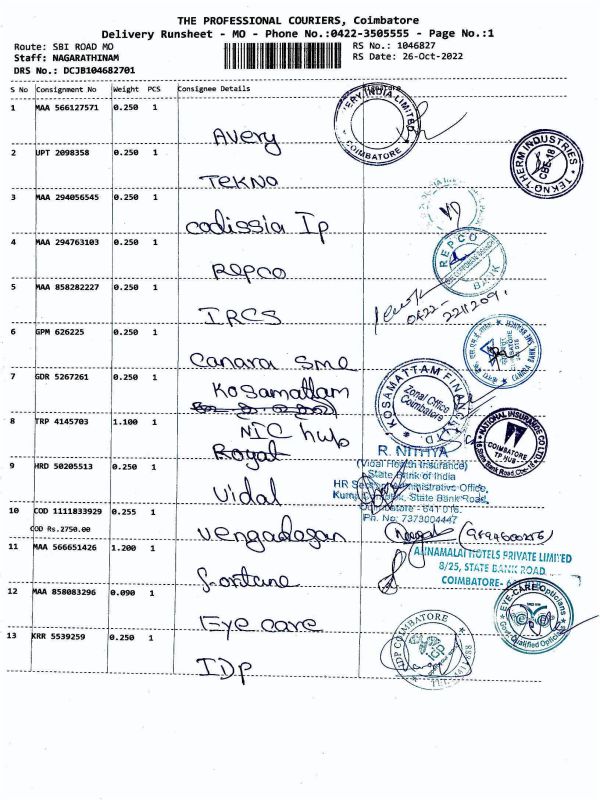 THE PROFESSIONAL COURIERS, Coimbatore
Delivery Runsheet - MO - Phone No.:0422-3505555 - Page No.:1
Route: SBI ROAD MO
RS No.: 1046827
Staff: NAGARATHINAM
RS Date: 26-Oct-2022
DRS No.: DCJB104682701
S No Consignment No Weight PCS Consignee Details Signature
1 MAA 566127571 0.250 1
AVERY INDIA LIMITED
COIMBATORE
Avery
2 UPT 2098358 0.250 1
TEKNO THERM INDUSTRIES
CBE-18
TEKNO
3 MAA 294056545 0.250 1
codissia Ip
4 MAA 294763103 0.250 1
REPCO BANK
Repco
5 MAA 858282227 0.250 1
0422-
2211209
IRCS
6 GPM 626225 0.250 1
Canara SME
7 GDR 5267261 0.250 1
Kosamattam
KOSAMATTAM FINANCE LTD
Zonal Office
Coimbatore
8 TRP 4145703 1.100 1
NIC hub
Royal
NATIONAL INSURANCE CO LTD
COIMBATORE
TP HUB
9 HRD 50205513 0.250 1
Vidal
R. NITHYA
(Vidal Health Insurance)
State Bank of India
HR Section, Administrative Office,
State Bank Road,
Coimbatore - 641 018.
Ph. No: 7373004447
10 COD 1111833929 0.255 1
COD Rs.2750.00
Vengadasan
11 MAA 566651426 1.200 1
ANNAMALAI HOTELS PRIVATE LIMITED
8/25, STATE BANK ROAD
COIMBATORE-
Fortune
12 MAA 858083296 0.090 1
EYE-CARE Opticians
Govt. Qualified Opticians
Eye care
13 KRR 5539259 0.250 1
IDP COIMBATORE
IDP
IDp